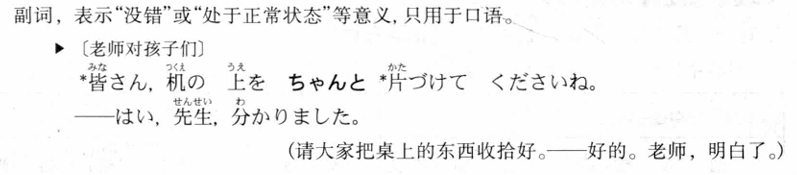 副词，表示“没错”或“处于正常状态”等意义，只用于口语。
▶〔老师对孩子们〕
みな つくえ うえ かた
*皆さん，机の 上を ちゃんと *片づけて くださいね。
せんせい わ
——はい，先生，分かりました。
（请大家把桌上的东西收拾好。——好的。老师，明白了。）